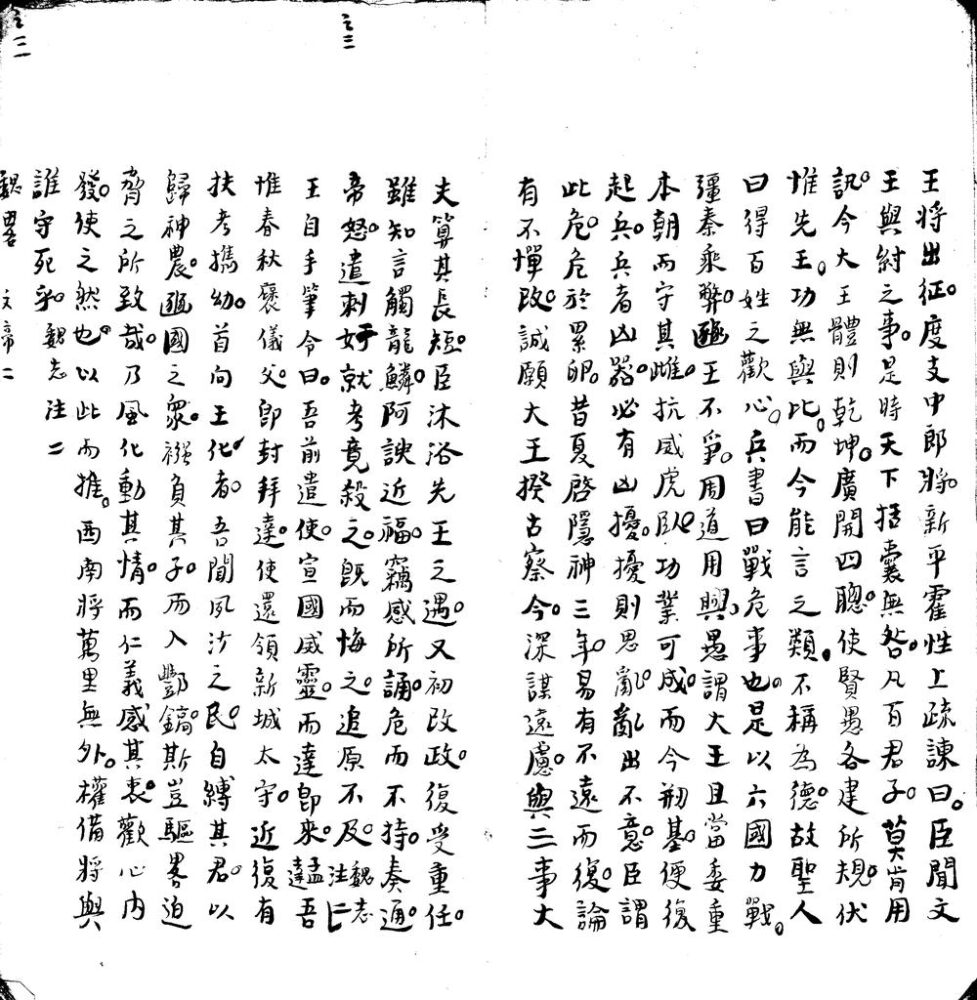 王將出征。度支中郎將。新平霍性上疏諫曰。臣聞文
王與紂之事。是時天下括囊無咎。凡百君子。莫肯用
訊。今大王體則乾坤。廣開四聰。使賢愚各建所規。伏
惟先王。功無與比。而今能言之類。不稱為德。故聖人
曰得百姓之歡心。兵書曰戰危事也。是以六國力戰。
彊秦乘弊。豳王不爭。周道用興。愚謂大王且當委重
本朝而守其雌。抗威虎臥。功業可成。而今剏基。便復
起兵。兵者凶器。必有凶擾。擾則思亂。亂出不意。臣謂
此危。危於累卵。昔夏啓隱神三年。易有不遠而復。論
有不憚改。誠願大王揆古察今。深謀遠慮。與三事大
夫算其長短。臣沐浴先王之遇。又初改政。復受重任。
雖知言觸龍鱗。阿諛近福。竊感所誦。危而不持。奏通。
帝怒。遣刺奸就考。竟殺之。既而悔之。追原不及。魏志注二
王自手筆令曰。吾前遣使。宣國威靈。而達即來。孟達吾
惟春秋襃儀父。即封拜達。使還領新城太守。近復有
扶考攜幼。首向王化者。吾聞夙沙之民。自縛其君。以
歸神農。豳國之衆。襁負其子。而入酆鎬。斯豈驅畧迫
脅之所致哉。乃風化動其情。而仁義感其衷。歡心內
發。使之然也。以此而推。西南將萬里無外。權備將與
誰守死乎。魏志注二
魏畧 文帝二
卷二
卷二